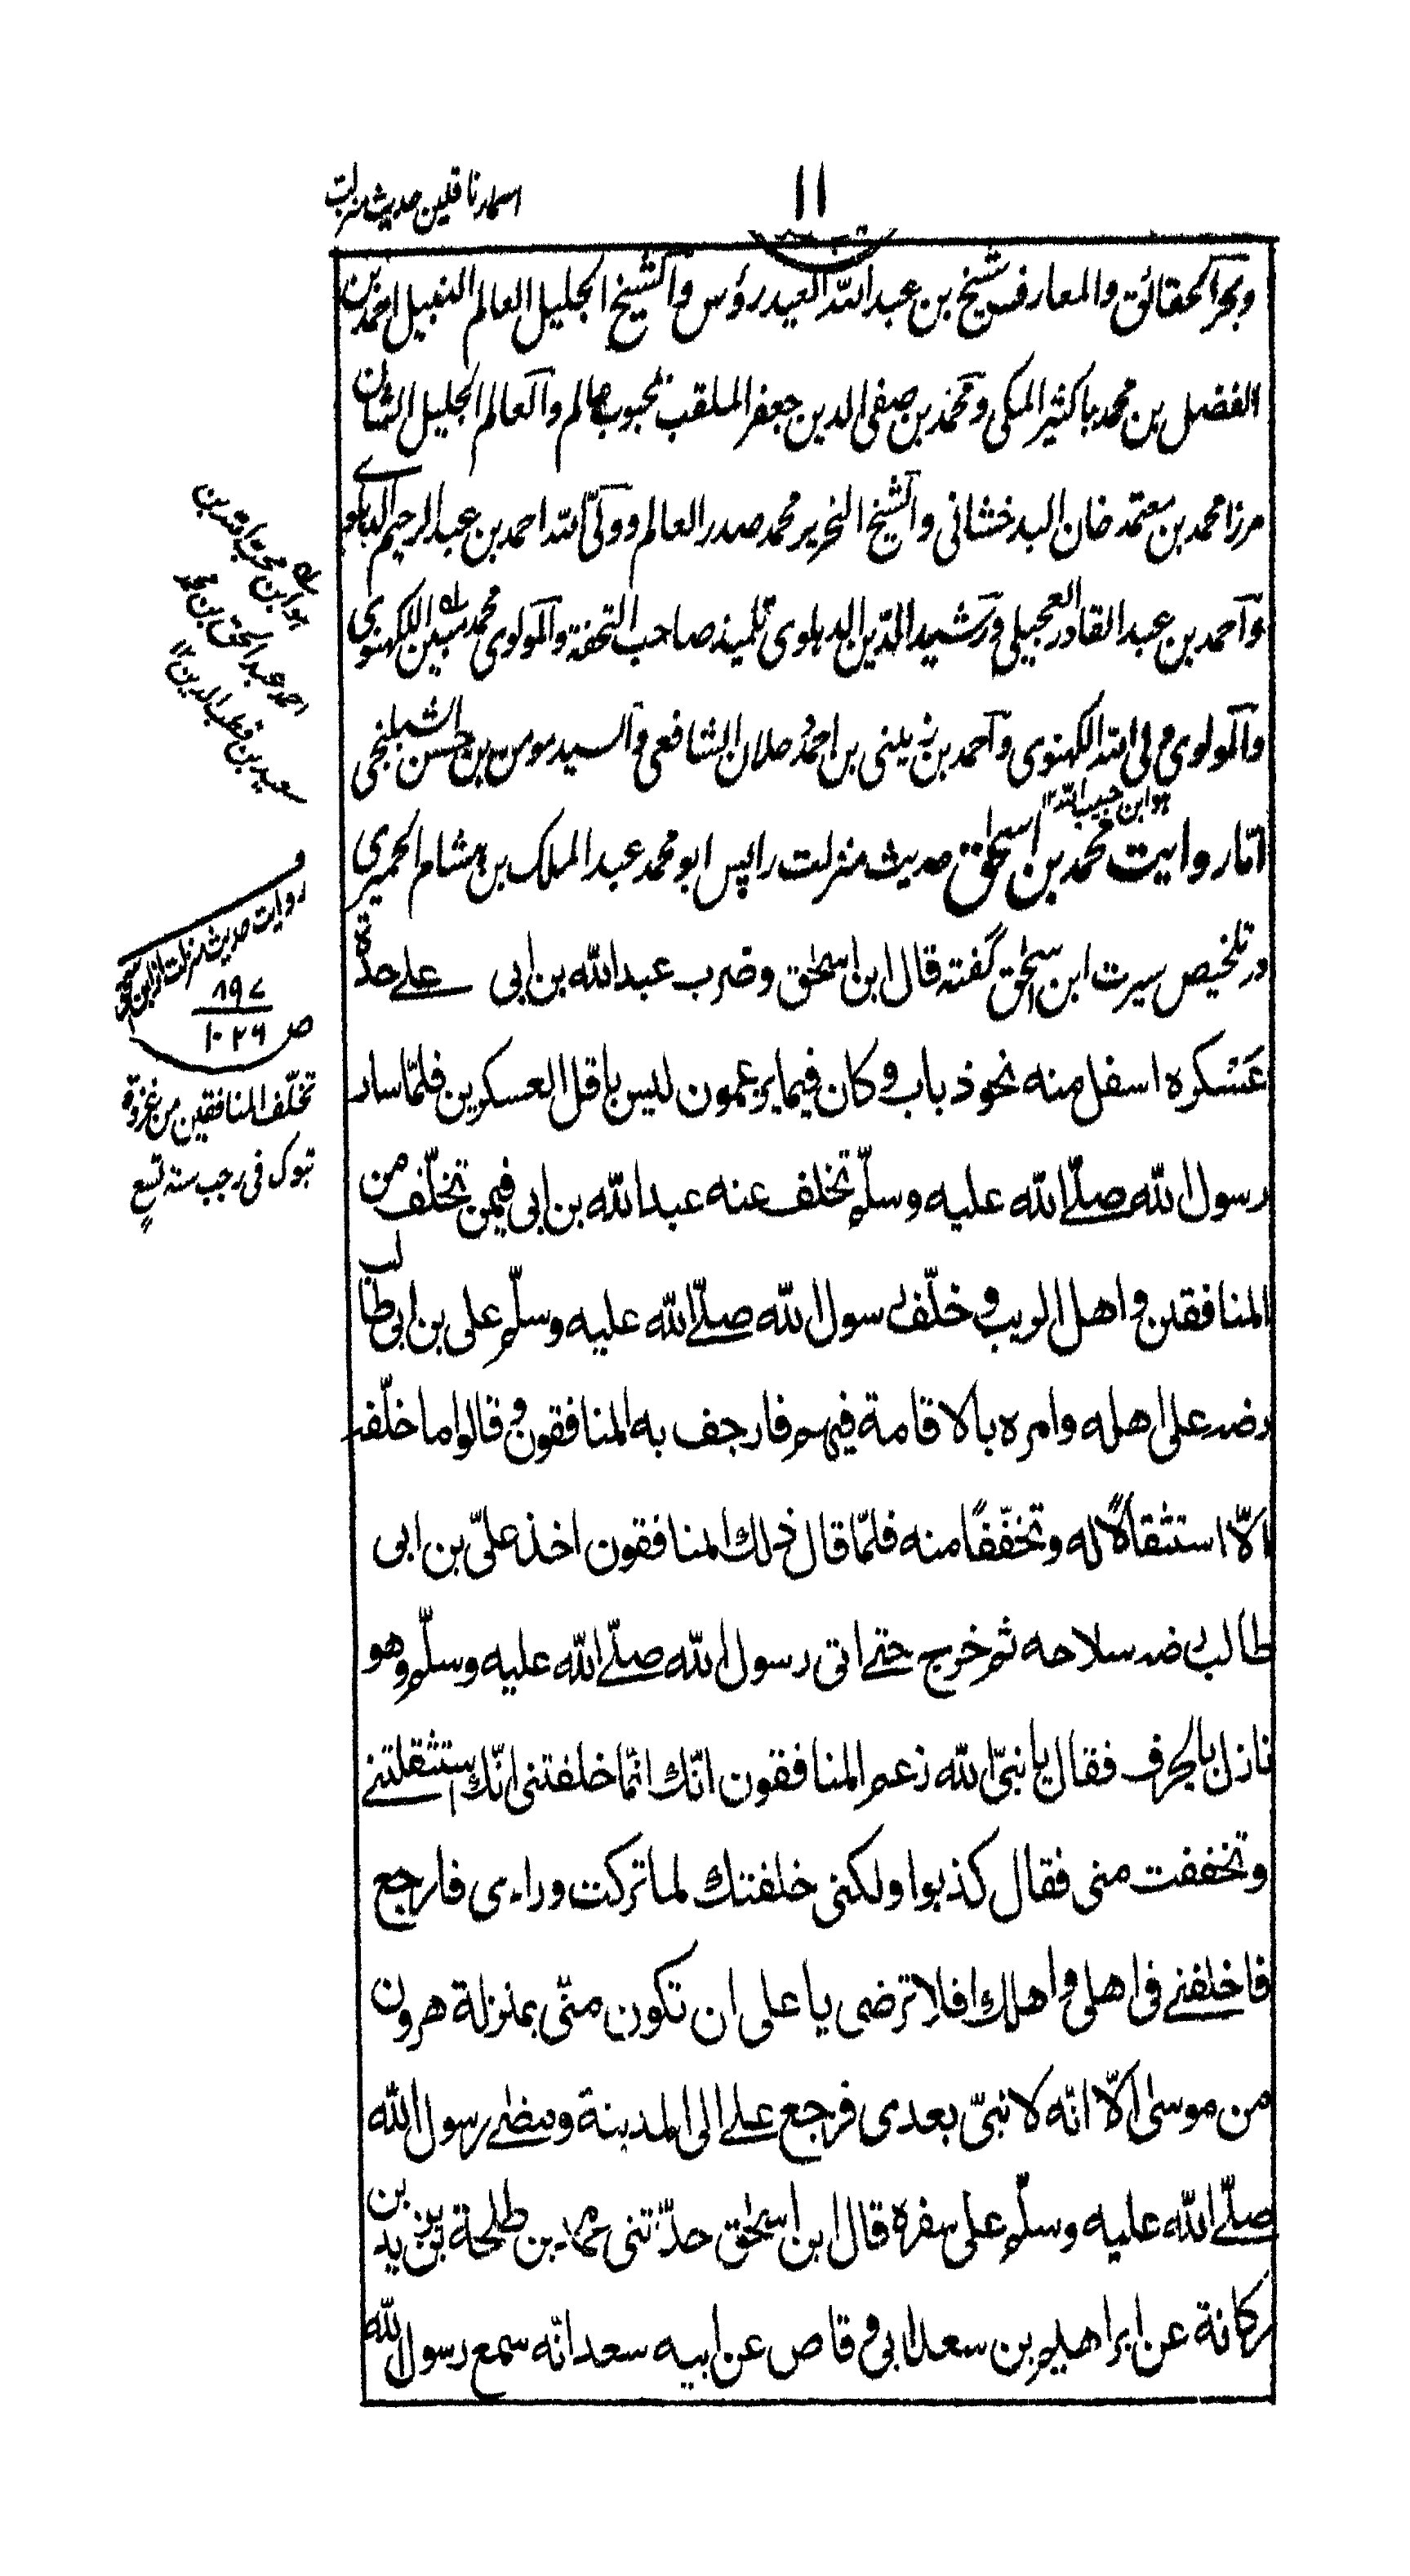 ۱۱
اسماء ناقلین حدیث منزلت
وبحر الحقائق والمعارف شیخ بن عبد الله العیدروس والشیخ الجلیل العالم النبیل احمد بن
الفضل بن محمد باکثیر المکی ومحمد بن صفی الدین جعفر الملقب بمحبوب عالم والعالم الجلیل الشان
مرزا محمد بن معتمد خان البدخشانی والشیخ النحریر محمد صدر العالم وولی الله احمد بن عبد الرحیم الدهلوی
واحمد بن عبد القادر العجیلی ورشید الدین الدهلوی تلمیذ صاحب التحفة والمولوی محمد مبین اللکهنوی
والمولوی ولی الله اللکهنوی واحمد بن زینی بن احمد دحلان الشافعی والسید مومن بن حسن الشبلنجی
هو ابن حبیب الله ۱۲
امّا روایت محمد بن اسحٰق حدیث منزلت را پس ابو محمد عبد الملک بن هشام الحمیری
در تلخیص سیرت ابن اسحٰق گفته قال ابن اسحٰق وضرب عبد الله بن ابی علے حدة
عسکره اسفل منه نحو ذباب وکان فیما یزعمون لیس باقل العسکرین فلمّا سار
رسول الله صلّے الله علیه وسلّم تخلف عنه عبد الله بن ابی فیمن تخلّف من
المنافقین واهل الریب وخلّف رسول الله صلّے الله علیه وسلّم علی بن ابی طالب
رضه علی اهله وامره بالاقامة فیهم فارجف به المنافقون وقالوا ما خلّفه
الّا استثقالًا له وتخفّفًا منه فلمّا قال ذلك المنافقون اخذ علیّ بن ابی
طالب رضه سلاحه ثم خرج حتے اتی رسول الله صلّے الله علیه وسلّم وهو
نازل بالجرف فقال یا نبیّ الله زعم المنافقون انّك انّما خلفتنی انّك استثقلتنے
وتخففت منی فقال کذبوا ولکنی خلفتك لما ترکت وراءی فارجع
فاخلفنے فی اهلی واهلك افلا ترضی یا علی ان تکون منّی بمنزلة هرون
من موسٰی الّا انّه لا نبیّ بعدی فرجع علے الی المدینة ومضٰے رسول الله
صلّے الله علیه وسلّم علی سفره قال ابن اسحٰق حدّثنی محمد بن طلحة بن یزید بن
رکانة عن ابراهیم بن سعد ابی وقاص عن ابیه سعد انّه سمع رسول الله
هو ابن محب الله بن
احمد عبد الحق بن محمد
سعید بن قطب الدین ۱۲
روایت حدیث منزلت از ابن اسحق
ص ۸۹۷
۱۰۲۶
تخلّف المنافقین من غزوة
تبوك فی رجب سنة تسع